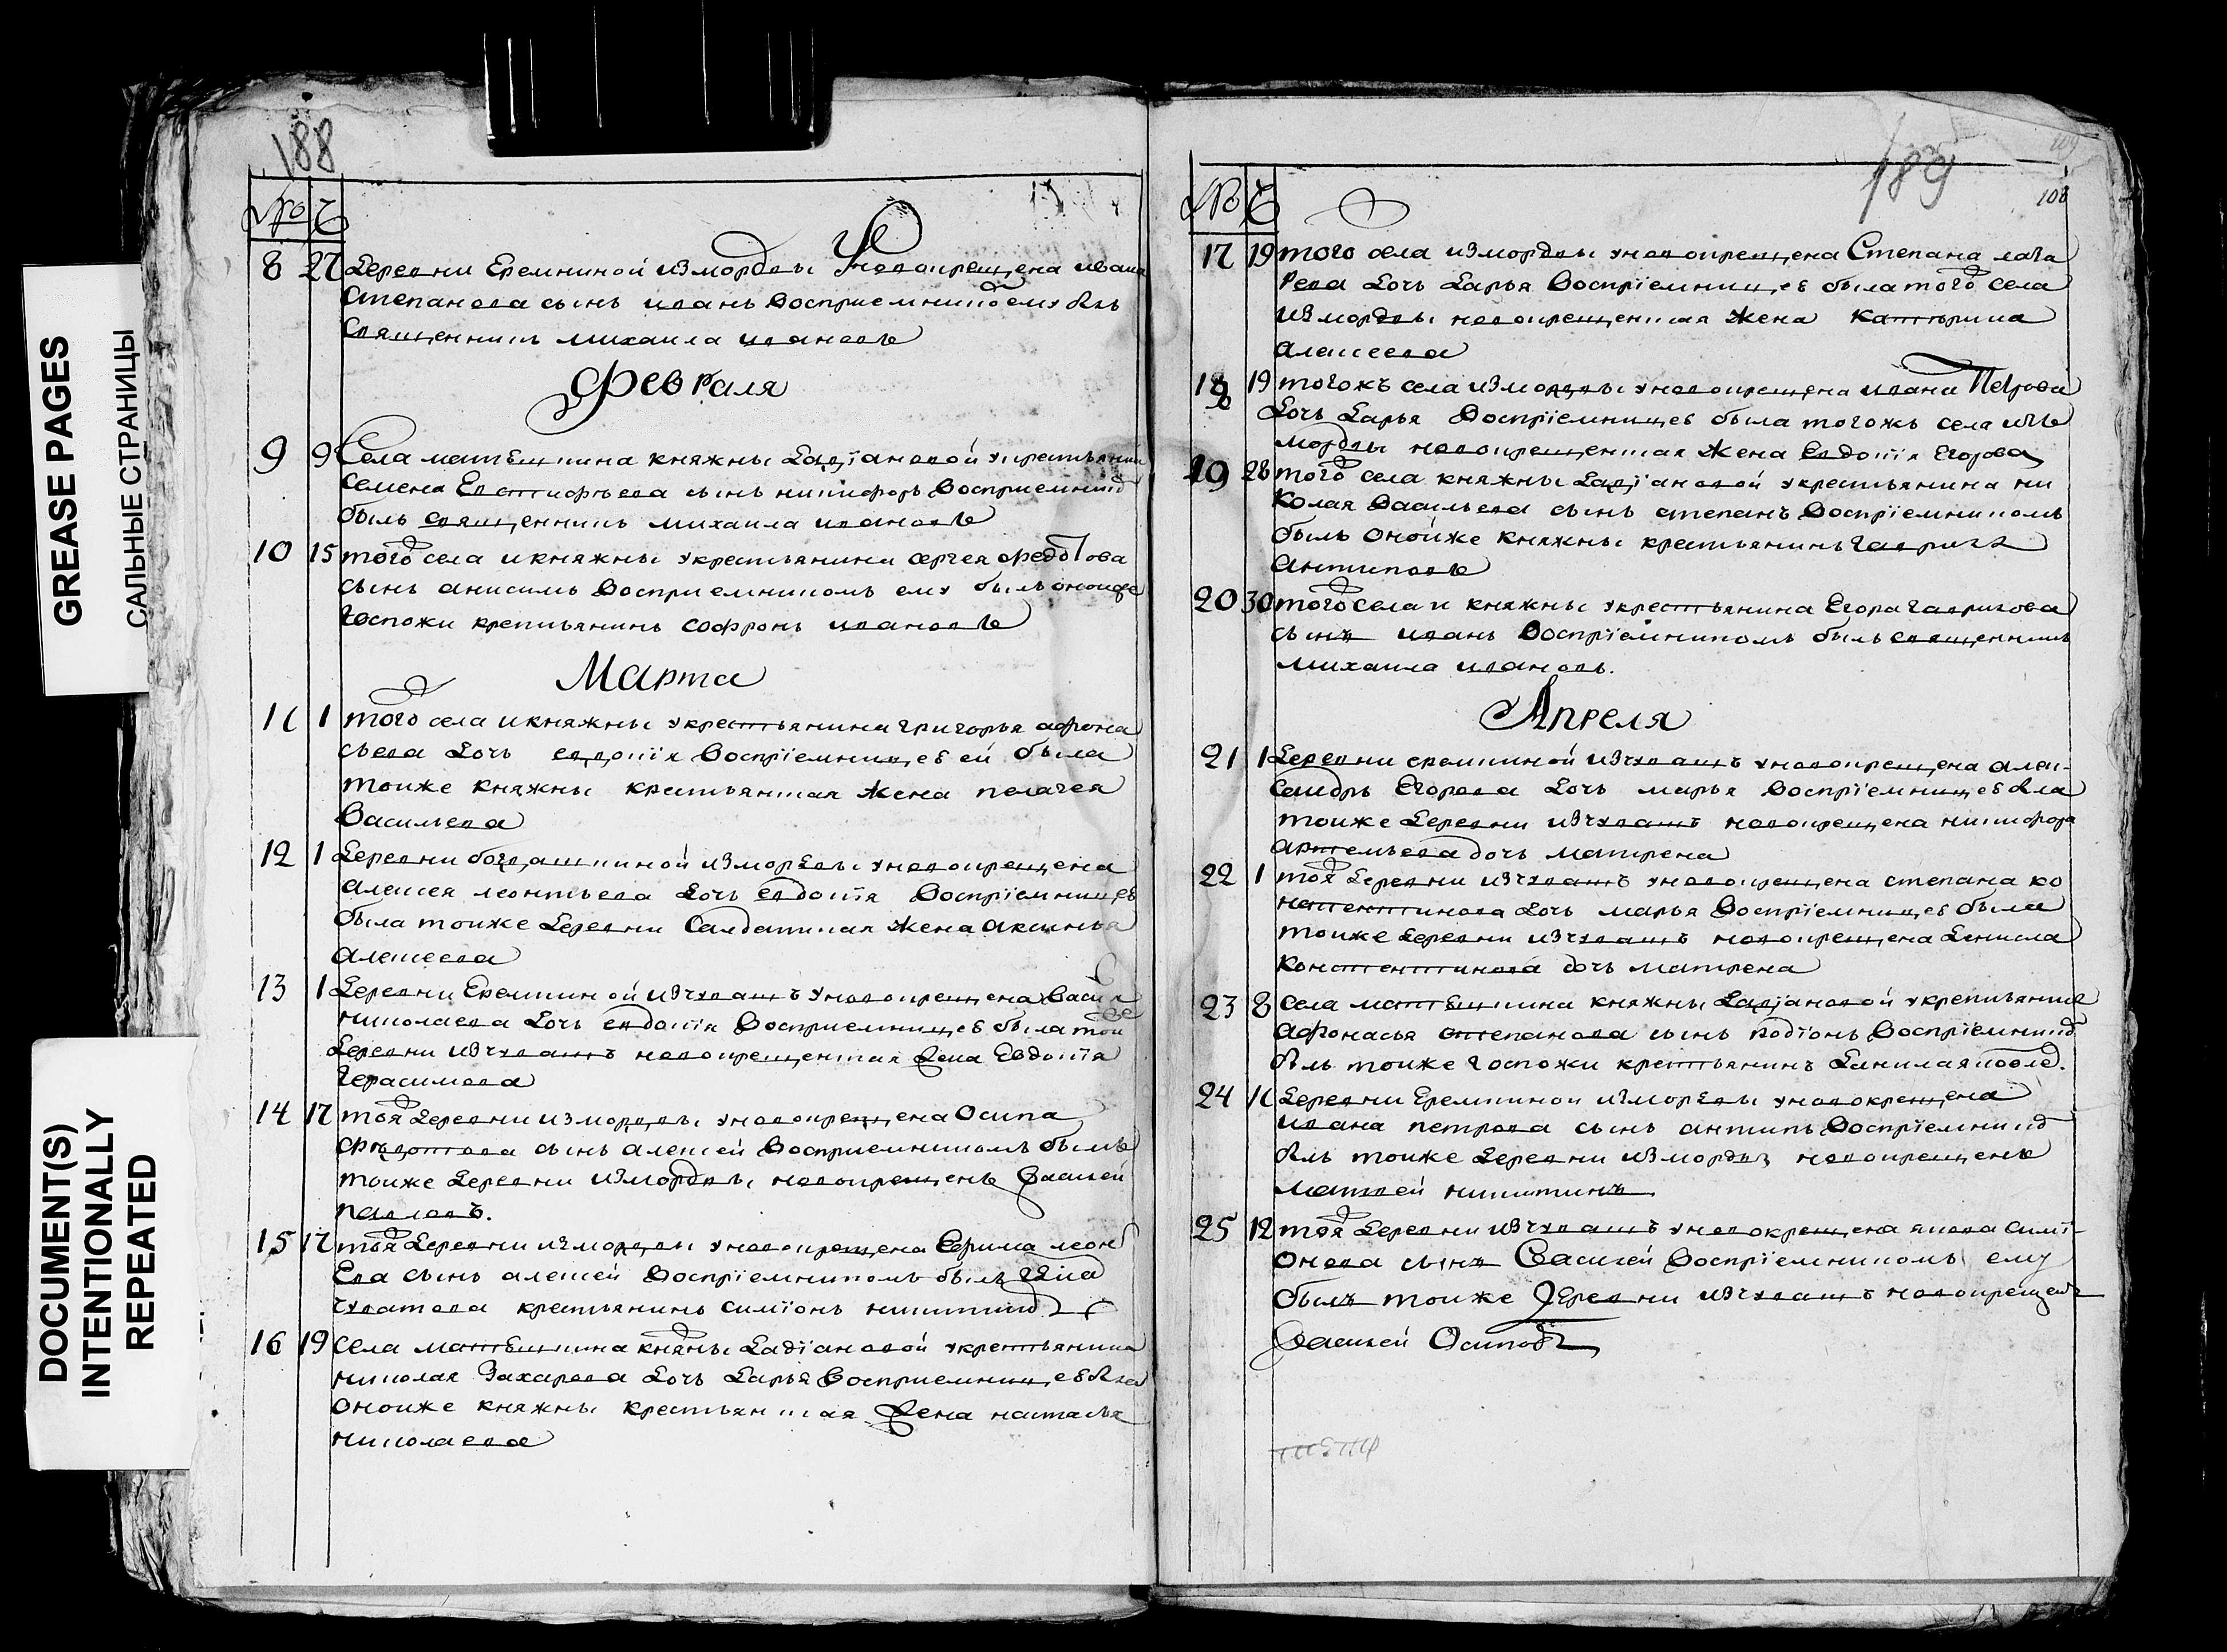 GREASE PAGES
САЛЬНЫЕ СТРАНИЦЫ
DOCUMENT(S)
INTENTIONALLY
REPEATED
188
№ Ч
8 27 деревни Еремкиной измордвы Уновокрещена ивана
Степанова сынъ иванъ восприемникомъ ему былъ
Священникъ михаила ивановъ
Февраля
9 9 Села матвшкина княжны Дадїановой укрестьянина
Семена сынъ никифоръ восприемникъ
былъ священникъ михаила ивановъ
10 15 того села и княжны укрестьянина сергея федотова
сынъ анисимъ восприемникомъ ему былъ оноиже
госпожи крестьянинъ софронъ ивановъ
Марта
11 1 того села и княжны укрестьянина григорья афона
сьева дочь евдокїя восприемницею ей была
тоиже княжны крестьянская жена пелагея
васильева
12 1 деревни богдашкиной измордвы уновокрещена
алексея леонтьева дочь евдокїя восприемницею
была тоиже деревни Салдатская жена аксинья
алексеева
13 1 деревни Еремкиной изчувашъ уновокрещена васи
николаева дочь евдокїя восприемницею была тои
деревни изчувашъ новокрещенская жена Евдокїя
Герасимова
14 17 тоя деревни измордвы уновокрещена Осипа
федотова сынъ алексей восприемникомъ былъ
тоиже деревни измордвы новокрещенъ василей
павловъ.
15 17 тоя деревни измордвы уновокрещена Ефима леон
ева сынъ алексей восприемникомъ былъ
крестьянинъ симїонъ никитинъ
16 19 села матвшкина княжны Дадїановой укрестьянина
николая Захарова дочь Дарья восприемницею была
оноиже княжны крестьянская жена настасья
николаева
189
108
№ Ч
17 19 того села измордвы уновокрещена Степана лаза
рева дочь Дарья восприемницею была того села
измордвы новокрещенская жена катерина
алексеева
18 19 тогожъ села измордвы уновокрещена ивана Петрова
дочь Дарья восприемницею была тогожъ села изъ
мордвы новокрещенская жена Евдокїя Егорова
19 28 того села княжны Дадїановой укрестьянина ни
колая васильева сынъ степанъ восприемникомъ
былъ онойже княжны крестьянинъ гаврила
антиповъ
20 30 того села и княжны укрестьянина Егора гаврилова
сынъ иванъ восприемникомъ былъ священникъ
михаила ивановъ.
Апреля
21 1 деревни еремкиной изчувашъ уновокрещена алек-
сандръ Егорова дочь марья восприемницею была
тоиже деревни изчувашъ новокрещена никифора
артемьева дочь матрена
22 1 тоя деревни изчувашъ уновокрещена степана ко
нстентинова дочь марья восприемницею была
тоиже деревни изчувашъ новокрещена Дениса
Констентинова дочь матрена
23 8 села матвшкина княжны Дадїановой укрестьянина
афонасья степанова сынъ родїонъ восприемникъ
былъ тоиже госпожи крестьянинъ Данила
24 11 деревни Еремкинои измордвы уновокрещена
ивана петрова сынъ антипъ восприемникъ
былъ тоиже деревни измордвы новокрещенъ
матвей никитинъ
25 12 тоя деревни изчувашъ уновокрещена якова симї-
онова сынъ Василей восприемникомъ ему
былъ тоиже деревни изчувашъ новокрещенъ
Василей Осиповъ